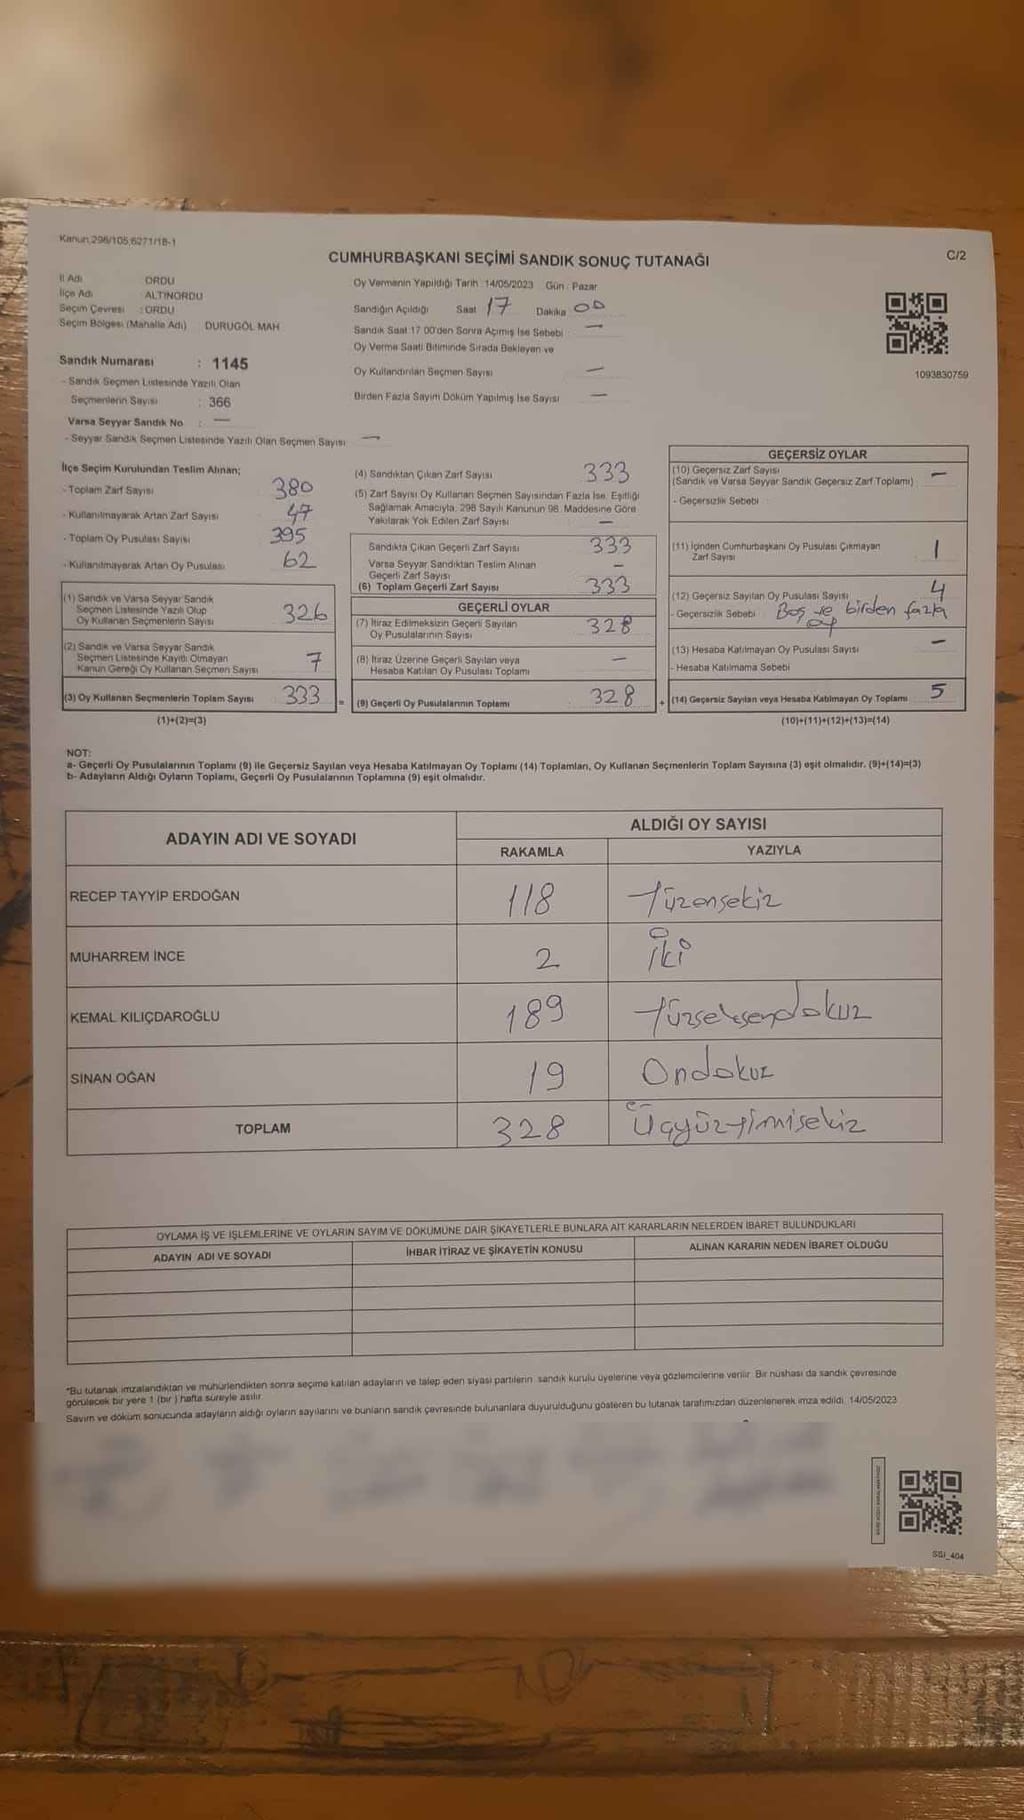 Kanun,298/105,6271/18-1
CUMHURBAŞKANI SEÇİMİ SANDIK SONUÇ TUTANAĞI
C/2
İl Adı ORDU
İlçe Adı ALTINORDU
Seçim Çevresi : ORDU
Seçim Bölgesi (Mahalle Adı) DURUGÖL MAH
Sandık Numarası : 1145
- Sandık Seçmen Listesinde Yazılı Olan
Seçmenlerin Sayısı : 366
Varsa Seyyar Sandık No : —
- Seyyar Sandık Seçmen Listesinde Yazılı Olan Seçmen Sayısı —
Oy Vermenin Yapıldığı Tarih : 14/05/2023 Gün : Pazar
Sandığın Açıldığı Saat 17 Dakika 00
Sandık Saat 17.00'den Sonra Açımış İse Sebebi —
Oy Verme Saati Bitiminde Sırada Bekleyen ve
Oy Kullandırılan Seçmen Sayısı —
Birden Fazla Sayım Döküm Yapılmış İse Sayısı —
1093830759
İlçe Seçim Kurulundan Teslim Alınan;
- Toplam Zarf Sayısı 380
- Kullanılmayarak Artan Zarf Sayısı 47
- Toplam Oy Pusulası Sayısı 395
- Kullanılmayarak Artan Oy Pusulası 62
(1) Sandık ve Varsa Seyyar Sandık
Seçmen Listesinde Yazılı Olup
Oy Kullanan Seçmenlerin Sayısı 326
(2) Sandık ve Varsa Seyyar Sandık
Seçmen Listesinde Kayıtlı Olmayan
Kanun Gereği Oy Kullanan Seçmen Sayısı 7
(3) Oy Kullanan Seçmenlerin Toplam Sayısı 333
(1)+(2)=(3)
=
(4) Sandıktan Çıkan Zarf Sayısı 333
(5) Zarf Sayısı Oy Kullanan Seçmen Sayısından Fazla İse, Eşitliği
Sağlamak Amacıyla, 298 Sayılı Kanunun 98. Maddesine Göre
Yakılarak Yok Edilen Zarf Sayısı —
Sandıkta Çıkan Geçerli Zarf Sayısı 333
Varsa Seyyar Sandıktan Teslim Alınan
Geçerli Zarf Sayısı —
(6) Toplam Geçerli Zarf Sayısı 333
GEÇERLİ OYLAR
(7) İtiraz Edilmeksizin Geçerli Sayılan
Oy Pusulalarının Sayısı 328
(8) İtiraz Üzerine Geçerli Sayılan veya
Hesaba Katılan Oy Pusulası Toplamı —
(9) Geçerli Oy Pusulalarının Toplamı 328
+
GEÇERSİZ OYLAR
(10) Geçersiz Zarf Sayısı
(Sandık ve Varsa Seyyar Sandık Geçersiz Zarf Toplamı) —
- Geçersizlik Sebebi
(11) İçinden Cumhurbaşkanı Oy Pusulası Çıkmayan
Zarf Sayısı 1
(12) Geçersiz Sayılan Oy Pusulası Sayısı 4
- Geçersizlik Sebebi Boş ve birden fazla
oy
(13) Hesaba Katılmayan Oy Pusulası Sayısı —
- Hesaba Katılmama Sebebi
(14) Geçersiz Sayılan veya Hesaba Katılmayan Oy Toplamı 5
(10)+(11)+(12)+(13)=(14)
NOT:
a- Geçerli Oy Pusulalarının Toplamı (9) ile Geçersiz Sayılan veya Hesaba Katılmayan Oy Toplamı (14) Toplamları, Oy Kullanan Seçmenlerin Toplam Sayısına (3) eşit olmalıdır. (9)+(14)=(3)
b- Adayların Aldığı Oyların Toplamı, Geçerli Oy Pusulalarının Toplamına (9) eşit olmalıdır.
ADAYIN ADI VE SOYADI
ALDIĞI OY SAYISI
RAKAMLA YAZIYLA
RECEP TAYYİP ERDOĞAN 118 Yüzonsekiz
MUHARREM İNCE 2 İki
KEMAL KILIÇDAROĞLU 189 Yüzseksendokuz
SİNAN OĞAN 19 Ondokuz
TOPLAM 328 Üçyüzyimisekiz
OYLAMA İŞ VE İŞLEMLERİNE VE OYLARIN SAYIM VE DÖKÜMÜNE DAİR ŞİKAYETLERLE BUNLARA AİT KARARLARIN NELERDEN İBARET BULUNDUKLARI
ADAYIN ADI VE SOYADI İHBAR İTİRAZ VE ŞİKAYETİN KONUSU ALINAN KARARIN NEDEN İBARET OLDUĞU
*Bu tutanak imzalandıktan ve mühürlendikten sonra seçime katılan adayların ve talep eden siyasi partilerin sandık kurulu üyelerine veya gözlemcilerine verilir. Bir nüshası da sandık çevresinde
görülecek bir yere 1 (bir ) hafta süreyle asılır.
Sayım ve döküm sonucunda adayların aldığı oyların sayılarını ve bunların sandık çevresinde bulunanlara duyurulduğunu gösteren bu tutanak tarafımızdan düzenlenerek imza edildi. 14/05/2023
SGI_404